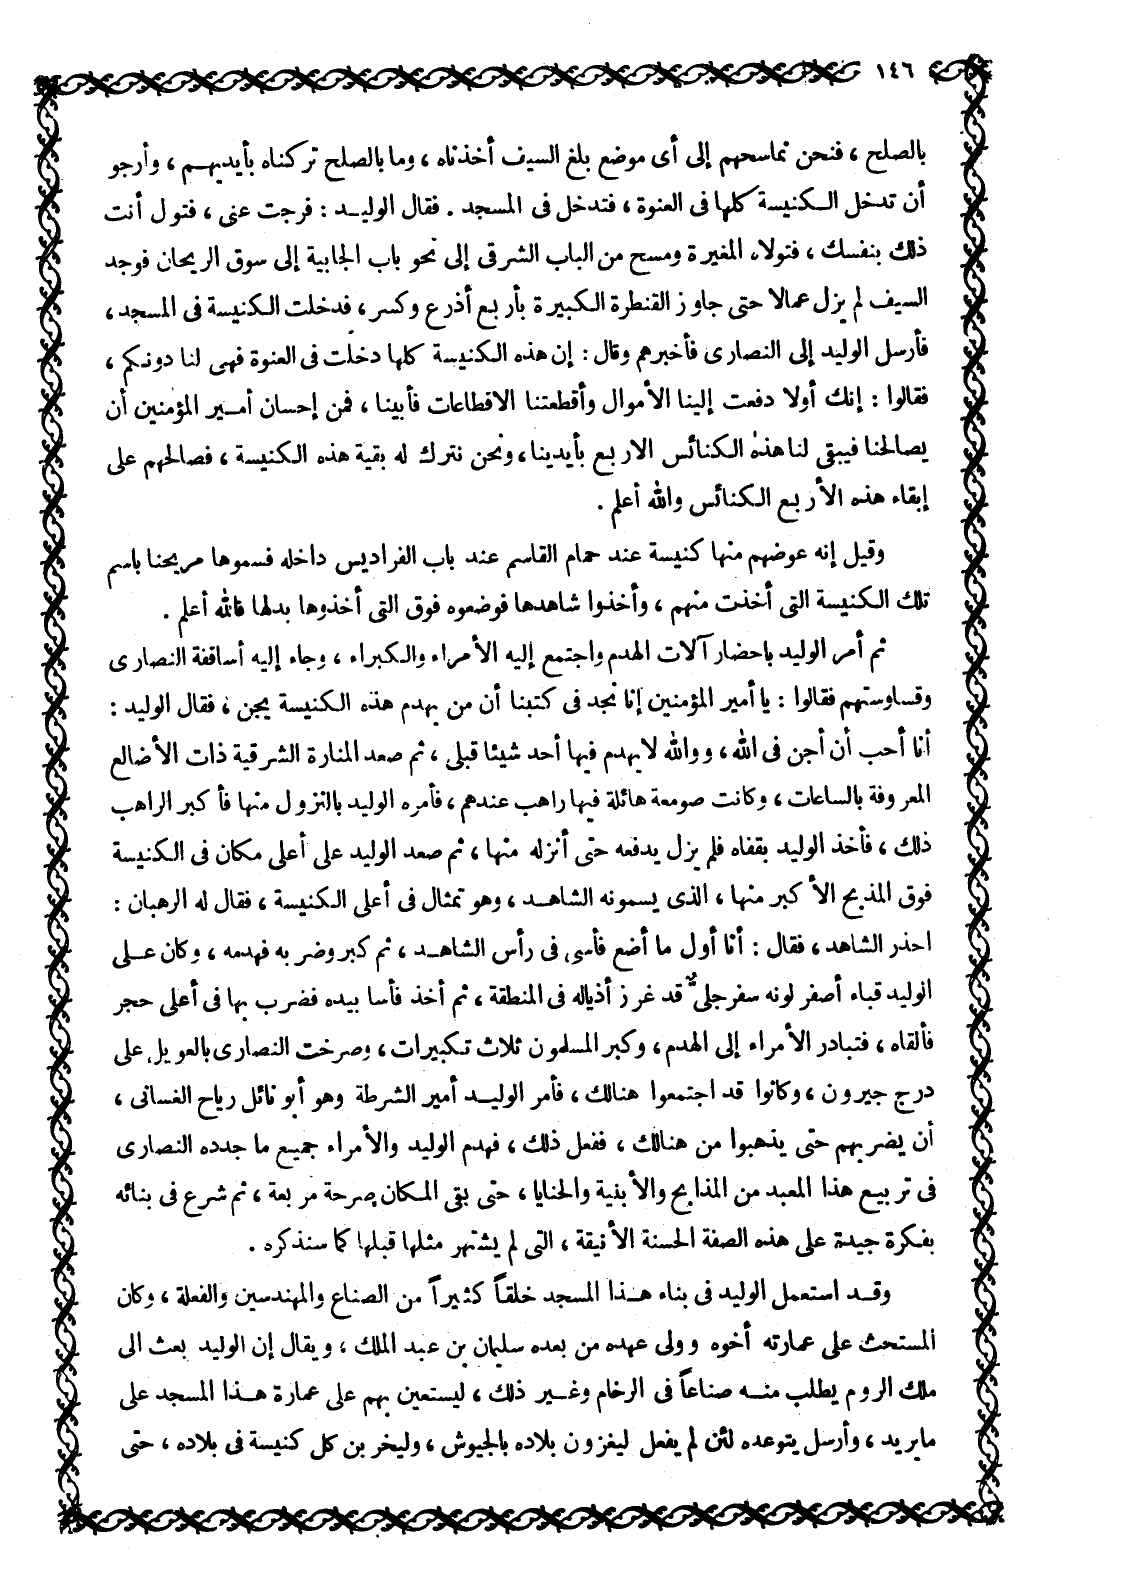 ١٤٦
بالصلح ، فنحن نماسحهم إلى أى موضع بلغ السيف أخذناه ، وما بالصلح تركناه بأيديهم ، وأرجو
أن تدخل الكنيسة كلها فى العنوة ، فتدخل فى المسجد . فقال الوليد : فرجت عنى ، فتول أنت
ذلك بنفسك ، فتولاه المغيرة ومسح من الباب الشرقى إلى نحو باب الجابية إلى سوق الريحان فوجد
السيف لم يزل عمالا حتى جاوز القنطرة الكبيرة بأربع أذرع وكسر ، فدخلت الكنيسة فى المسجد ،
فأرسل الوليد إلى النصارى فأخبرهم وقال : إن هذه الكنيسة كلها دخلت فى العنوة فهى لنا دونكم ،
فقالوا : إنك أولا دفعت إلينا الأموال وأقطعتنا الاقطاعات فأبينا ، فمن إحسان أمير المؤمنين أن
يصالحنا فيبقى لنا هذه الكنائس الاربع بأيدينا ، ونحن نترك له بقية هذه الكنيسة ، فصالحهم على
إبقاء هذه الأربع الكنائس والله أعلم .
وقيل إنه عوضهم منها كنيسة عند حمام القاسم عند باب الفراديس داخله فسموها مريحنا باسم
تلك الكنيسة التى أخذت منهم ، وأخذوا شاهدها فوضعوه فوق التى أخذوها بدلها فالله أعلم .
ثم أمر الوليد باحضار آلات الهدم واجتمع إليه الأمراء والكبراء ، وجاء إليه أساقفة النصارى
وقساوستهم فقالوا : يا أمير المؤمنين إنا نجد فى كتبنا أن من يهدم هذه الكنيسة يجن ، فقال الوليد :
أنا أحب أن أجن فى الله ، ووالله لا يهدم فيها أحد شيئا قبلى ، ثم صعد المنارة الشرقية ذات الأضالع
المعروفة بالساعات ، وكانت صومعة هائلة فيها راهب عندهم ، فأمره الوليد بالنزول منها فأكبر الراهب
ذلك ، فأخذ الوليد بقفاه فلم يزل يدفعه حتى أنزله منها ، ثم صعد الوليد على أعلى مكان فى الكنيسة
فوق المذبح الأكبر منها ، الذى يسمونه الشاهد ، وهو تمثال فى أعلى الكنيسة ، فقال له الرهبان :
احذر الشاهد ، فقال : أنا أول ما أضع فأسى فى رأس الشاهد ، ثم كبر وضربه فهدمه ، وكان على
الوليد قباء أصفر لونه سفرجلى قد غرز أذياله فى المنطقة ، ثم أخذ فأسا بيده فضرب بها فى أعلى حجر
فألقاه ، فتبادر الأمراء إلى الهدم ، وكبر المسلمون ثلاث تكبيرات ، وصرخت النصارى بالعويل على
درج جيرون ، وكانوا قد اجتمعوا هنالك ، فأمر الوليد أمير الشرطة وهو أبو نائل رياح الغسانى ،
أن يضربهم حتى يذهبوا من هنالك ، ففعل ذلك ، فهدم الوليد والأمراء جميع ما جدده النصارى
فى تربيع هذا المعبد من المذابح والأبنية والحنايا ، حتى بقى المكان صرحة مربعة ، ثم شرع فى بنائه
بفكرة جيدة على هذه الصفة الحسنة الأنيقة ، التى لم يشتهر مثلها قبلها كما سنذكره .
وقد استعمل الوليد فى بناء هذا المسجد خلقاً كثيراً من الصناع والمهندسين والفعلة ، وكان
المستحث على عمارته أخوه وولى عهده من بعده سليمان بن عبد الملك ، ويقال إن الوليد بعث الى
ملك الروم يطلب منه صناعاً فى الرخام وغير ذلك ، ليستعين بهم على عمارة هذا المسجد على
ما يريد ، وأرسل يتوعده لئن لم يفعل ليغزون بلاده بالجيوش ، وليخربن كل كنيسة فى بلاده ، حتى